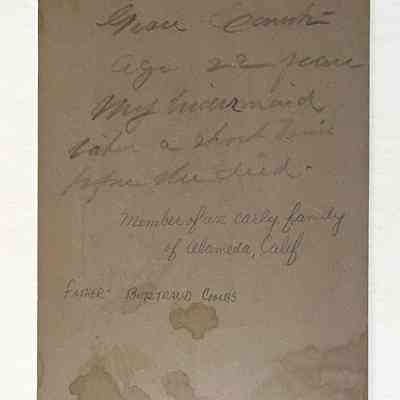 Grace Combs
Age 22 years
My bridesmaid
taken a short time
before she died.
Member of an early family
of Alameda, Calif
FATHER - BERTRAUD COMBS